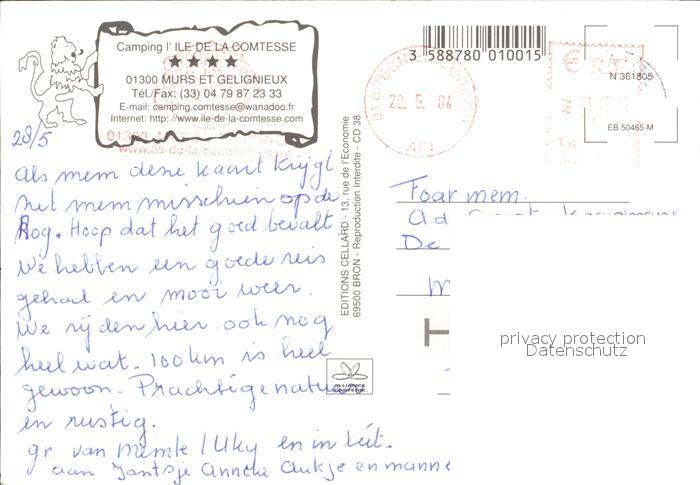 Camping l' ILE DE LA COMTESSE
★ ★ ★ ★
01300 MURS ET GELIGNIEUX
Tél./Fax: (33) 04 79 87 23 33
E-mail: camping.comtesse@wanadoo.fr
Internet: http: //www.ile-de-la-comtesse.com
28/5
Als mem deze kaart krijgt
zit mem misschien op de
Rog. Hoop dat het goed bevalt
We hebben een goede reis
gehad en mooi weer.
We rijden hier ook nog
heel wat. 100 km is heel
gewoon. Prachtige natuur
en rustig.
gr. van Uky en in tút.
aan Jantsje Anneke Aukje en manne
EDITIONS CELLARD - 13, rue de l'Economie
69500 BRON - Reproduction Interdite - CD 38
3 588780 010015
28. 5. 04
AIN
N 361805
EB 50465-M
Foar mem.
Ad
De
M
T
ALLIANCE
privacy protection
Datenschutz